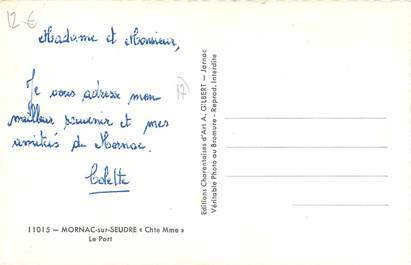 12 €
Madame et Monsieur,
Je vous adresse mon
meilleur souvenir et mes
amitiés du Mornac.
Colette
17
11015 — MORNAC-sur-SEUDRE « Chte Mme »
Le Port
Editions Charentaises d'Art A. GILBERT — Jarnac
Véritable Photo au Bromure - Reprod. Interdite